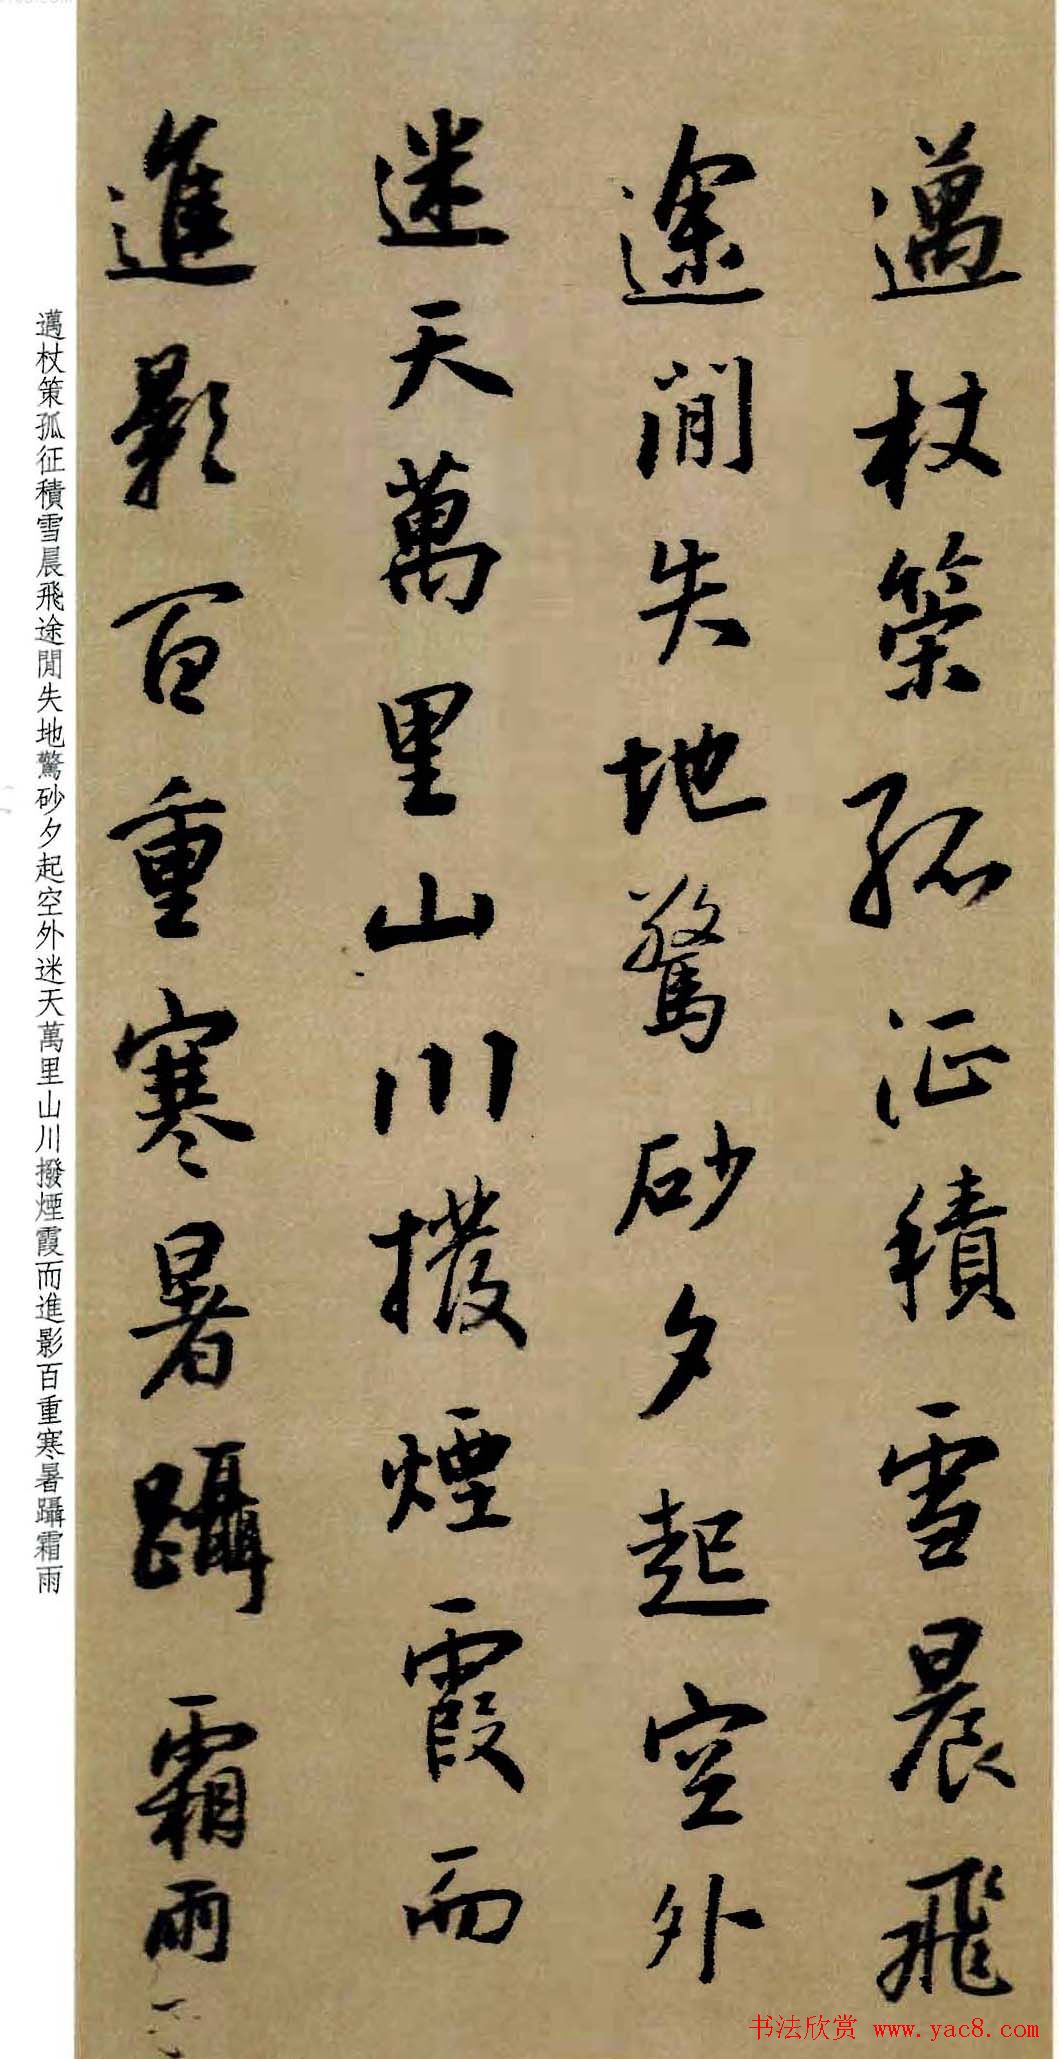 邁杖策孤征積雪晨飛
途間失地驚砂夕起空外
迷天萬里山川撥煙霞而
進影百重寒暑躡霜雨
邁杖策孤征積雪晨飛途閒失地驚砂夕起空外迷天萬里山川撥煙霞而進影百重寒暑躡霜雨
书法欣赏 www.yac8.com